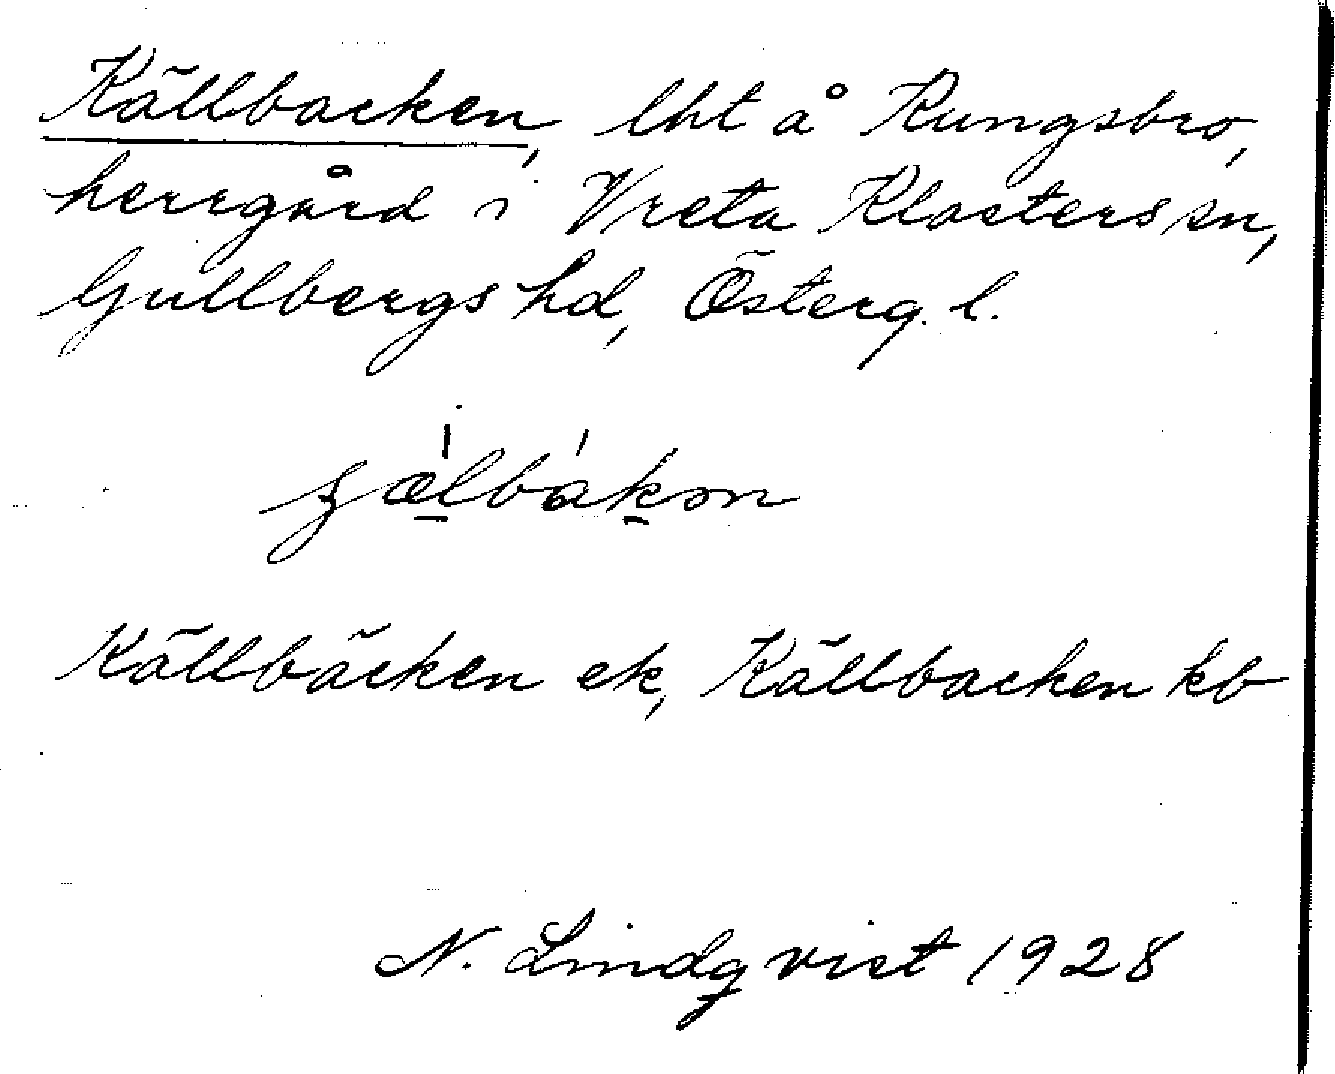 Källbacken, lht å Kungsbro,
herrgård i Vreta Klosters sn,
Gullbergs hd, Österg. l.
Källbäcken ek, Källbacken kb
N. Lindqvist 1928